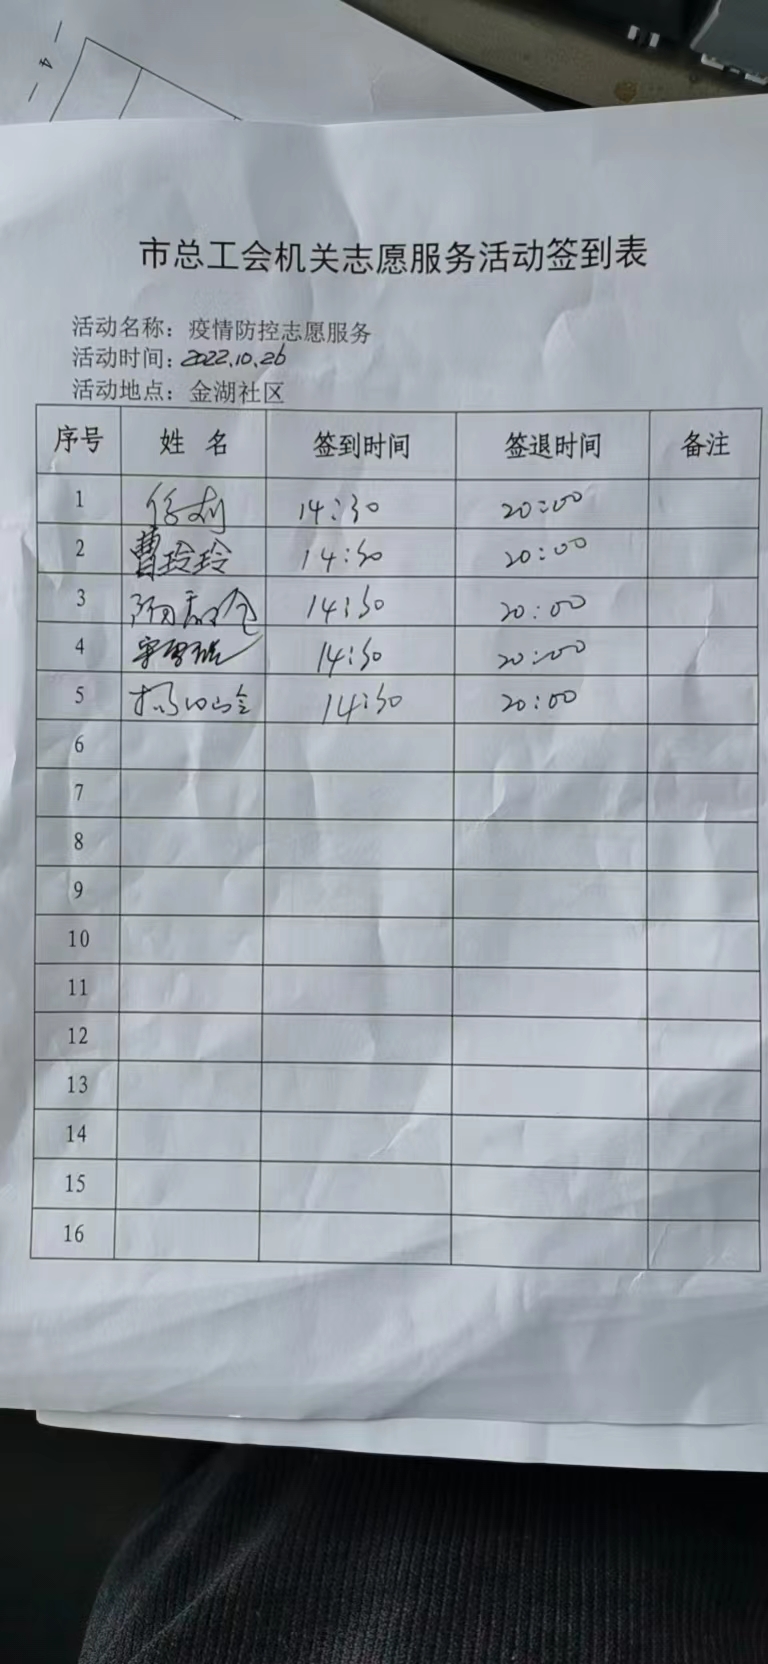 市总工会机关志愿服务活动签到表
活动名称：疫情防控志愿服务
活动时间：2022.10.26
活动地点：金湖社区
序号 姓名 签到时间 签退时间 备注
1 14:30 20:00
2 曹玲玲 14:30 20:00
3 14:30 20:00
4 14:30 20:00
5 14:30 20:00
6
7
8
9
10
11
12
13
14
15
16